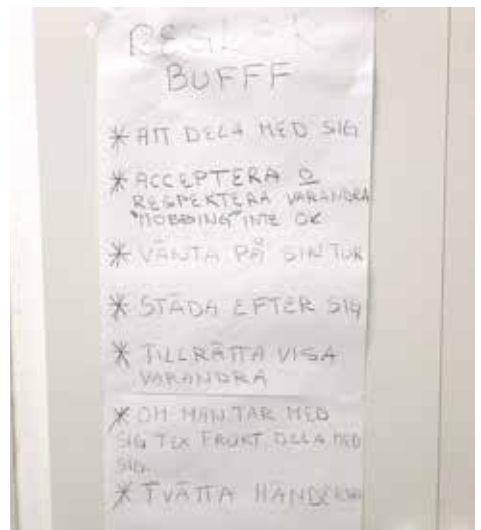 REGLER
BUFFF
* ATT DELA MED SIG
* ACCEPTERA O
RESPEKTERA VARANDRA
"MOBBING" INTE OK
* VÄNTA PÅ SIN TUR
* STÄDA EFTER SIG
* TILLRÄTTA VISA
VARANDRA
* OM MAN TAR MED
SIG TEX FRUKT DELA MED
SIG.
* TVÄTTA HÄNDERNA